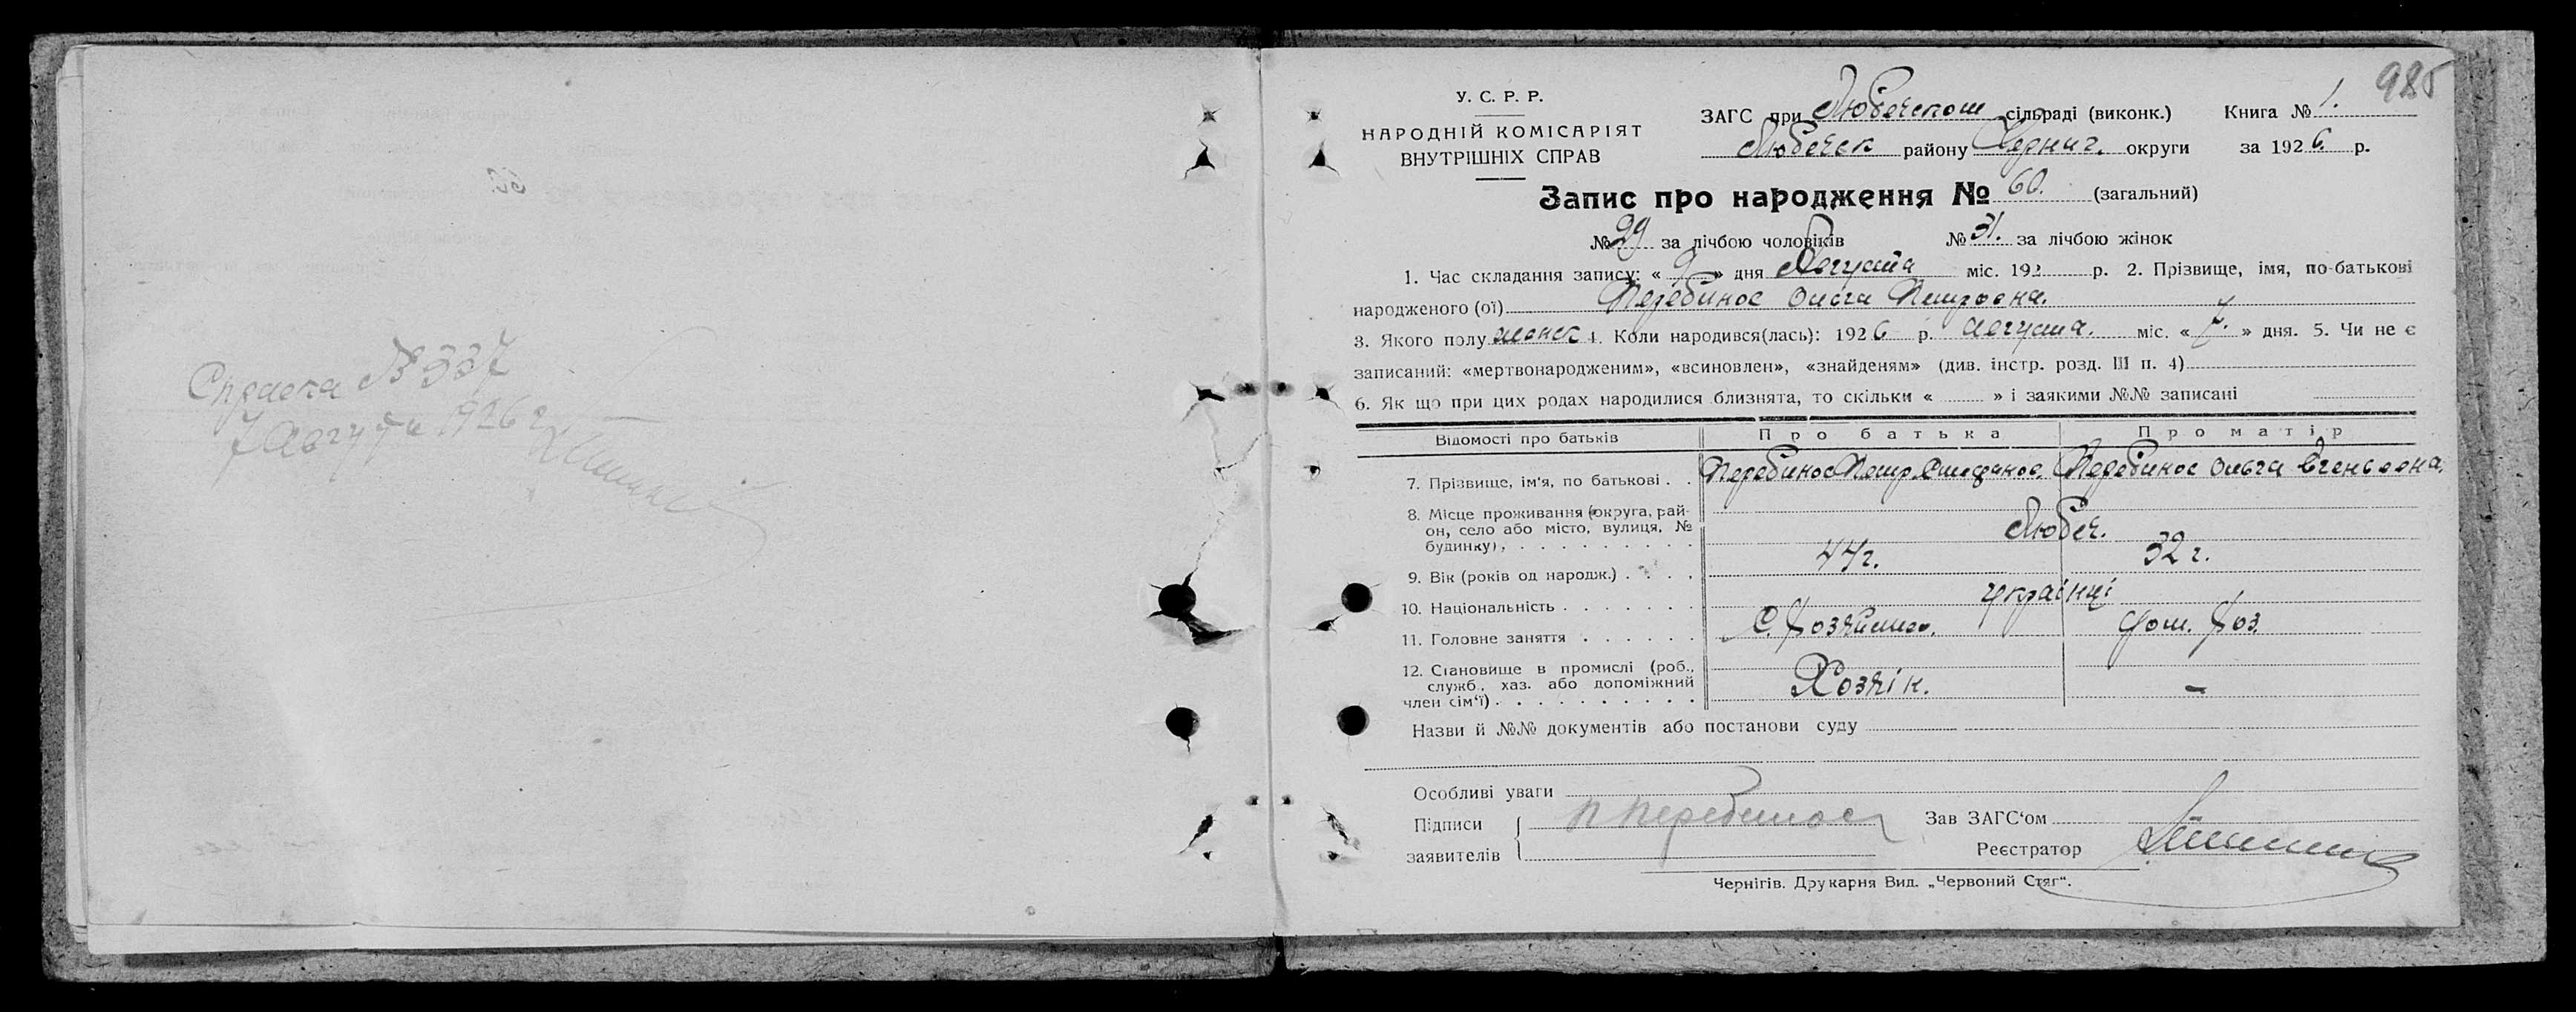 Справка № 337
7 Августа 1926 г
985
У. С. Р. Р.
НАРОДНІЙ КОМІСАРІЯТ
ВНУТРІШНІХ СПРАВ
ЗАГС при Любечском сільраді (виконк.) Книга № 1.
Любечск району Черниг. округи за 1926 р.
Запис про народження № 60. (загальний)
№ 29 за лічбою чоловіків № 31. за лічбою жінок
1. Час складання запису: « 9 » дня Августа міс. 192 р. 2. Прізвище, імя, по-батькові
народженого (ої) Перебинос Ольга Петровна.
3. Якого полу женск 4. Коли народився(лась): 1926 р. августа. міс. « 7. » дня. 5. Чи не є
записаний: «мертвонародженим», «всиновлен», «знайденям» (див. інстр. розд. III п. 4)
6. Як що при цих родах народилися близнята, то скільки « » і заякими №№ записані
Відомості про батьків Про батька Про матір
7. Прізвище, ім'я, по батькові . . Перебинос Петр Стефанов. Перебинос Ольга Евгеньевна.
8. Місце проживання (округа, рай-
он, село або місто, вулиця, №
будинку), . . . . . . . . . Любеч.
9. Вік (років од народж.) . . . . 44 г. 32 г.
10. Національність . . . . . . . українці
11. Головне заняття . . . . . . С. Хозяйство. Дом. Хоз.
12. Становище в промислі (роб.,
служб., хаз. або допоміжний
член сім'ї) . . . . . . . . . . Хозяїн. -
Назви й №№ документів або постанови суду
Особливі уваги
Підписи П Перебинос Зав ЗАГС'ом
заявителів Реєстратор
Чернігів. Друкарня Вид. „Червоний Стяг".